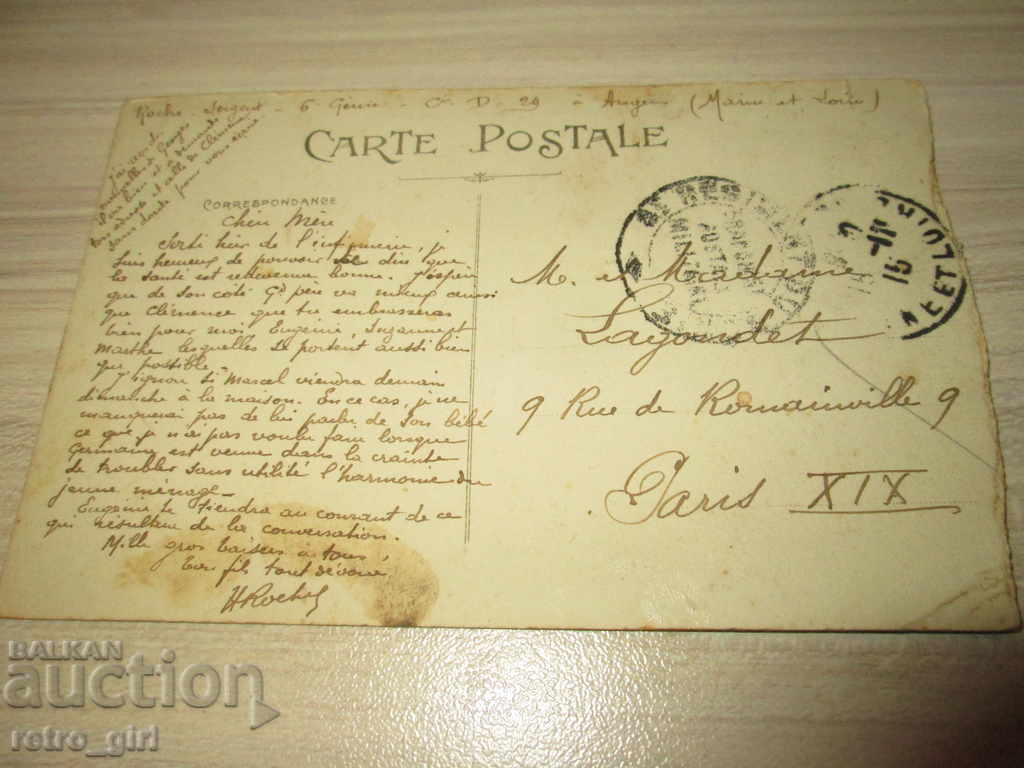 Roche Sergent - 6 Génie - Cie D. 29 à Angers (Maine et Loire)
CARTE POSTALE
j'ai
Georges
bien et
adresse et celle de Clémence
sans doute pour vous écrire
CORRESPONDANCE
Chère Mère
Sorti hier de l'infirmerie, je
suis heureux de pouvoir te dire que
la santé est revenue bonne. J'espère
que de son côté Gd père va mieux ainsi
que Clémence que tu embrasseras
bien pour moi, Eugénie, Suzanne et
Marthe lesquelles se portent aussi bien
que possible.
J'ignore si Marcel viendra demain
dimanche à la maison. En ce cas, je ne
manquerai pas de lui parler de son bébé
ce que je n'ai pas voulu faire lorsque
Germaine est venue dans la crainte
de troubler sans utilité l'harmonie du
jeune ménage.
Eugénie te tiendra au courant de ce
qui résultera de la conversation.
Mille gros baisers à tous,
Ton fils tout dévoué
HRoche
M. et Madame
Lagoudet
9 Rue de Romainville 9
Paris XIX
ET LOIRE
11
15
BALKAN
auction
retro_girl